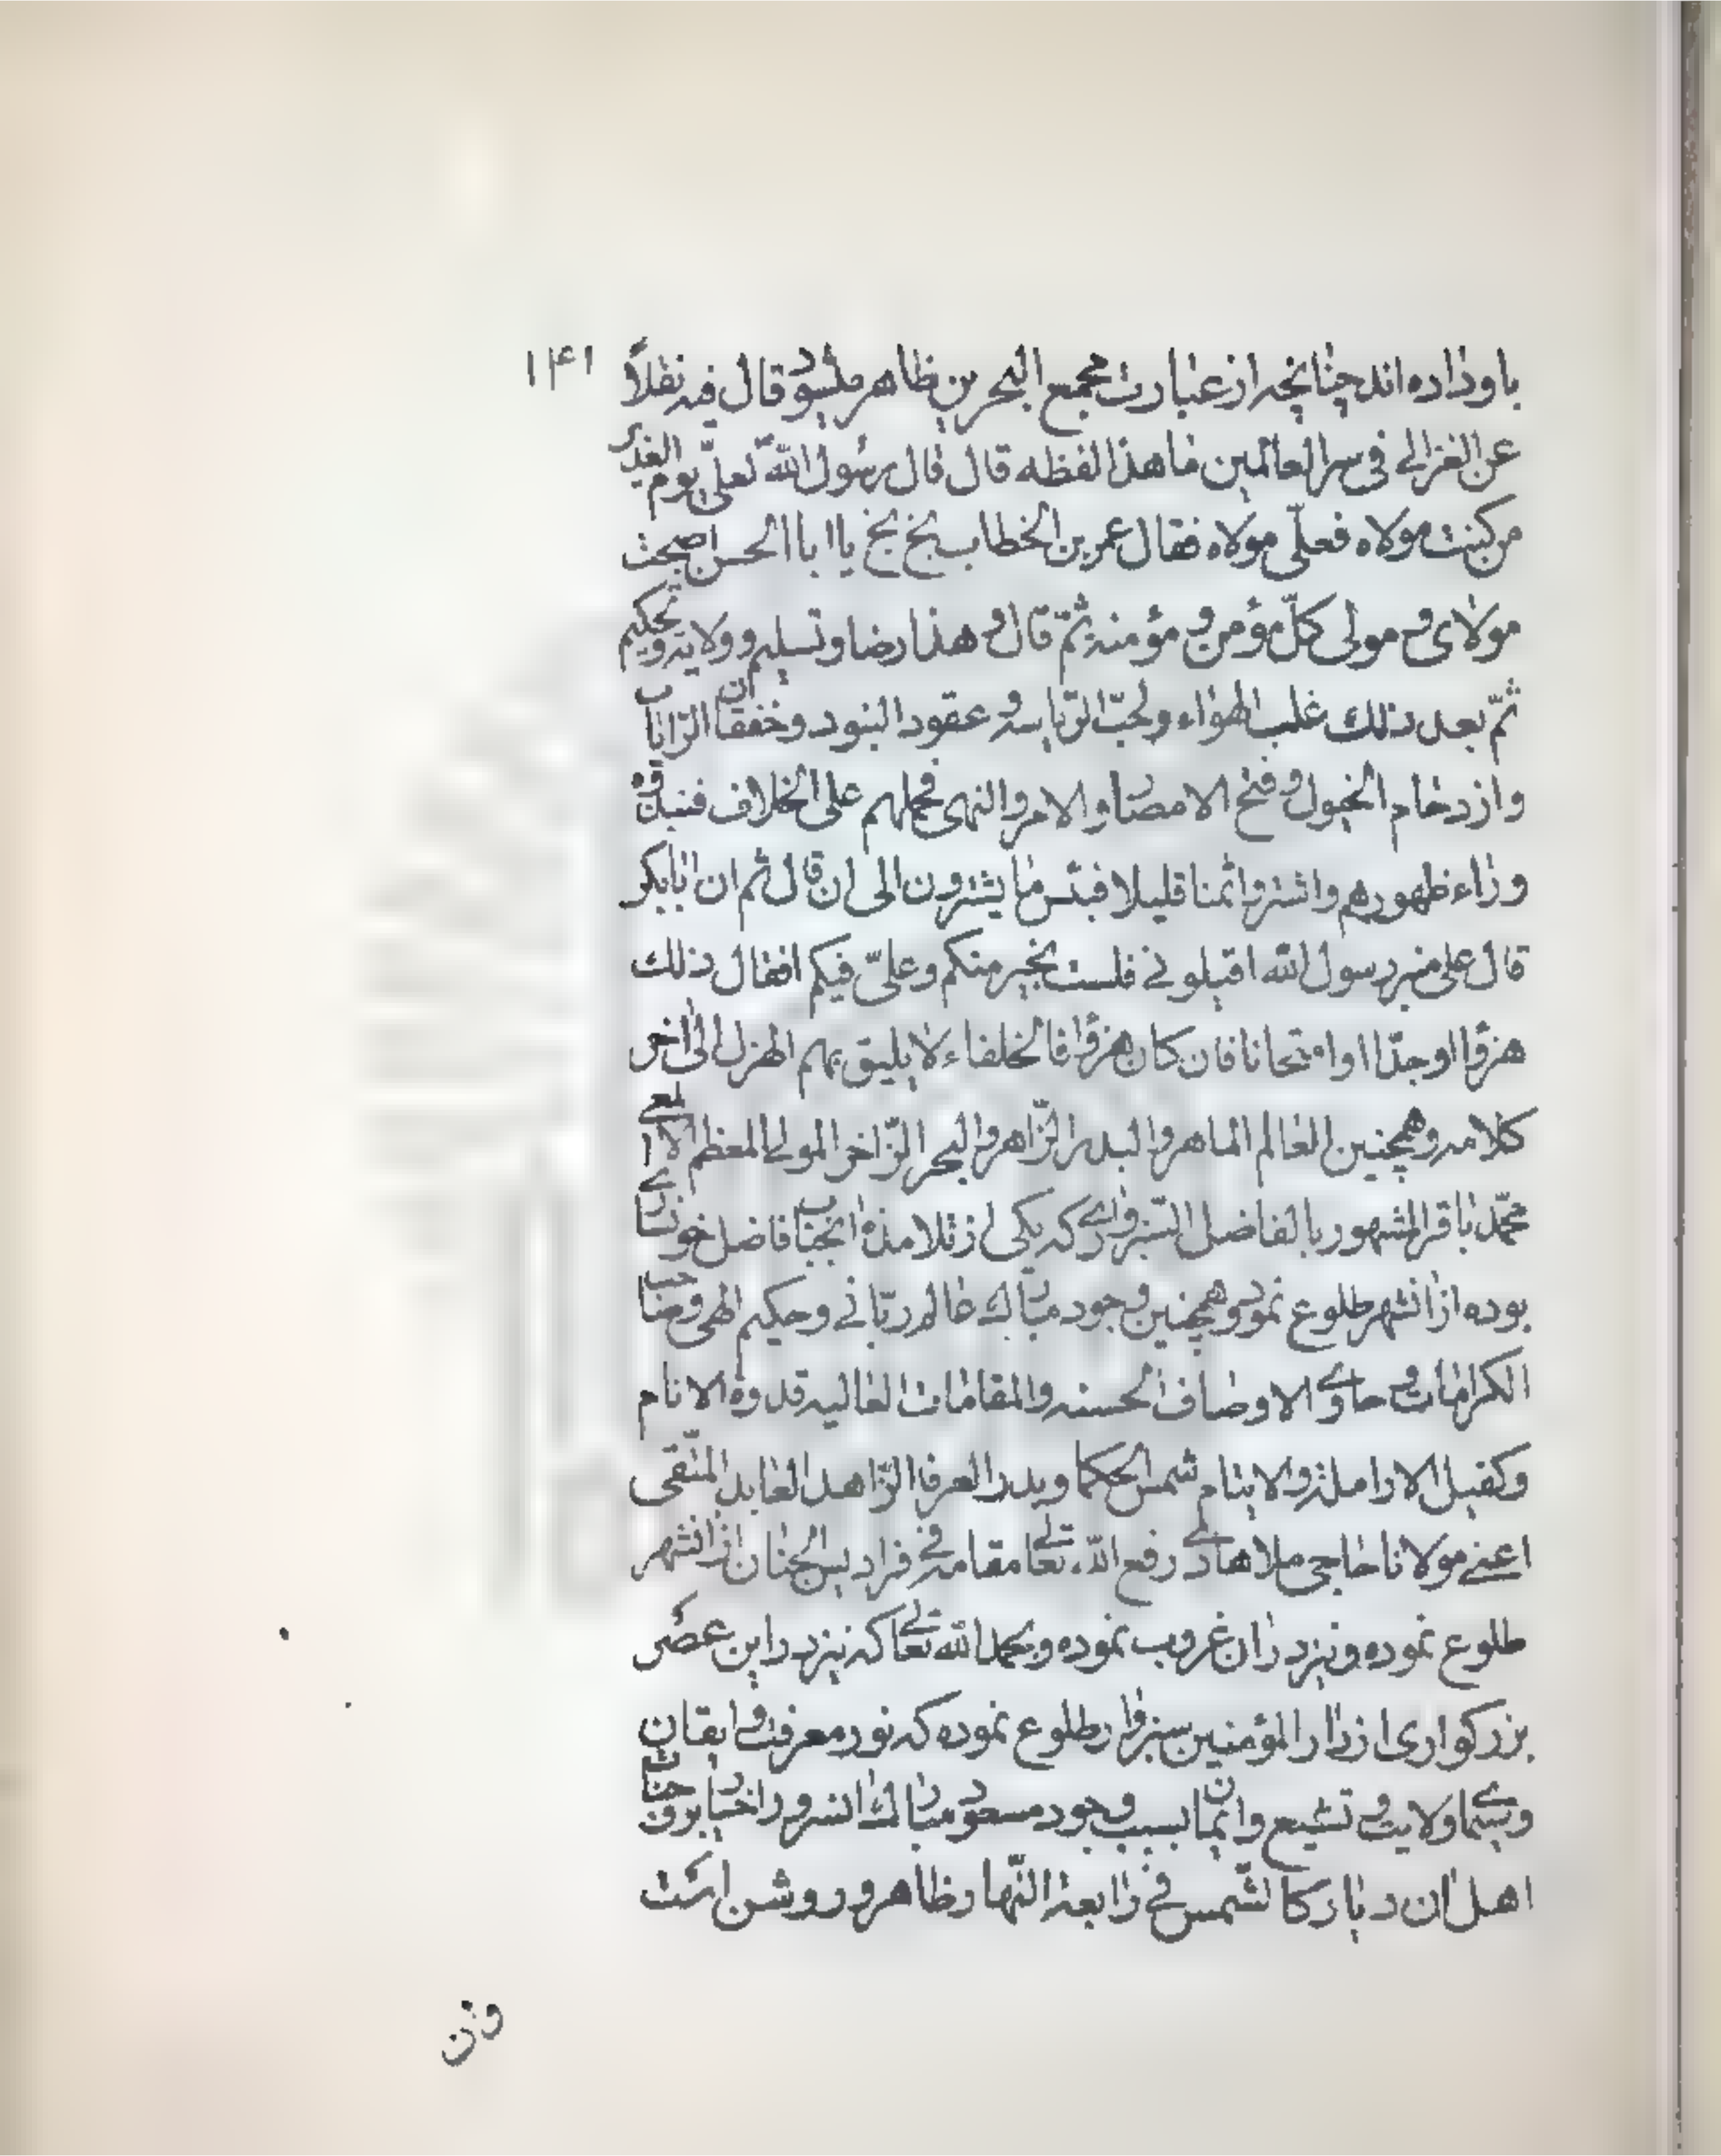 ۱۴۱
باو داده اند چنانچه از عبارت مجمع البحرین ظاهر میشود قال فیه نقلاً
عن الغزالے فی سر العالمین ما هذا لفظه قال قال رسول اللّه لعلیّ یوم الغدیر
من کنت مولاه فعلیّ مولاه فقال عمر بن الخطاب بخ بخ یا ابا الحسن اصبحت
مولای و مولی کلّ مؤمن و مؤمنه ثمّ قال و هذا رضا و تسلیم و ولایة و تحکیم
ثمّ بعد ذلك غلب الهواء و لحبّ الریاسه و عقود البنود و خفقان الرّایات
و ازدحام الخیول و فتح الامصار و الامر و النهی فحملهم علی الخلاف فنبذوه
وراء ظهورهم و اشتروا ثمنا قلیلا فبئس ما یشترون الی ان قال ثم ان ابابکر
قال علی منبر رسول اللّه اقیلونے فلست بخیر منکم و علیّ فیکم افقال ذلك
هزؤا او جدّا او امتحانا فان کان هزؤا فالخلفاء لا یلیق بهم الهزل الی اخر
کلامه و همچنین العالم الماهر و البدر الزّاهر و البحر الزّاخر المولے المعظم الالمعے
محمّد باقر المشهور بالفاضل السّبزواری که یکی از تلامذه انجناب فاضل خونساری
بوده از انشهر طلوع نمود و همچنین وجود مبارك عالم ربّانے و حکیم الهی و صاحب
الکرامات و حاوے الاوصاف الحسنه و المقامات العالیه قدوة الانام
و کفیل الارامله و الایتام شمس الحکما و بدر العرفا الزّاهد العابد المتّقی
اعنے مولانا حاجی ملا هادے رفع اللّه تعالے مقامه فے فرادیس الجنان از انشهر
طلوع نموده و نیز در ان غروب نموده و بحمد اللّه تعالے که نیز در این عصر
بزرکواری از دار المؤمنین سبزوار طلوع نموده که نور معرفت و ایقان
و سیمای ولایت و تشیع و ایمان بسبب وجود مسعود مبارك انسرور اخیار بر وجنات
اهل ان دیار کالشّمس فے رابعة النّهار ظاهر و روشن است